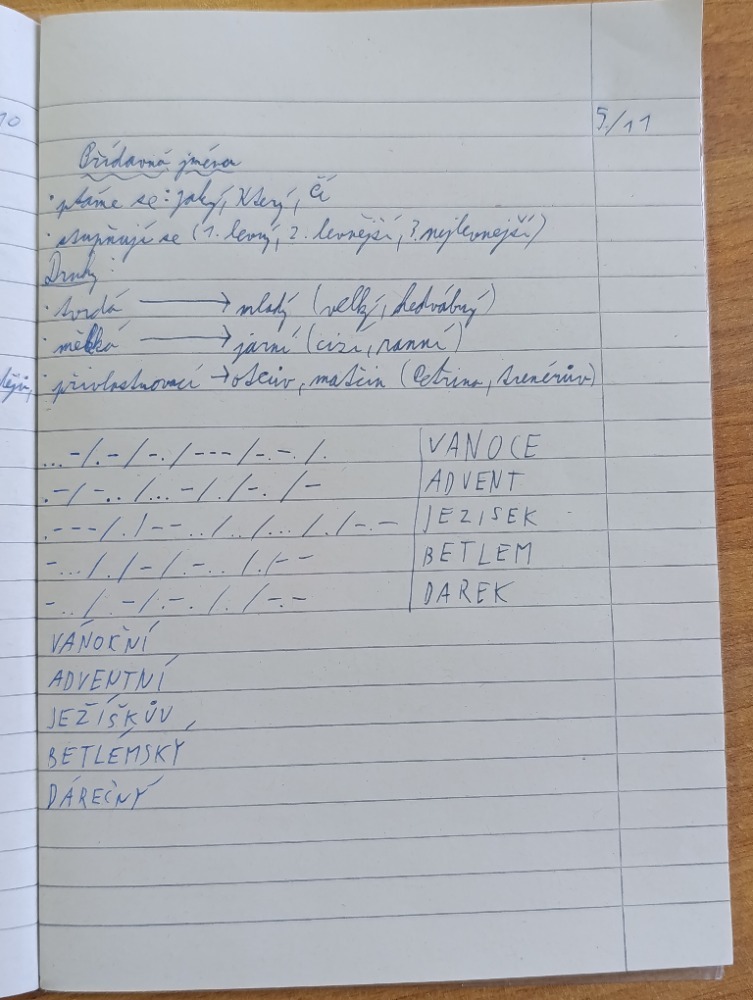 10
5/11
Přídavná jména
· ptáme se: jaký, který, čí
· stupňují se (1. levný, 2. levnější, 3. nejlevnejší)
Druhy:
· tvrdá → mladý (velký, hedvábný)
· měkká → jarní (cizí, ranní)
· přivlastnovací → otcův, matčin (Petrina, trenérův)
...-/.-/-./---/-.-./. VANOCE
.-/-../...-/./-./- ADVENT
.---/./--../../..././-.- JEZISEK
-.../././-/.-.././-- BETLEM
-../.-/.-././-.- DAREK
VÁNOČNÍ
ADVENTNÍ
JEŽÍŠKŮV
BETLÉMSKÝ
DÁREČNÝ